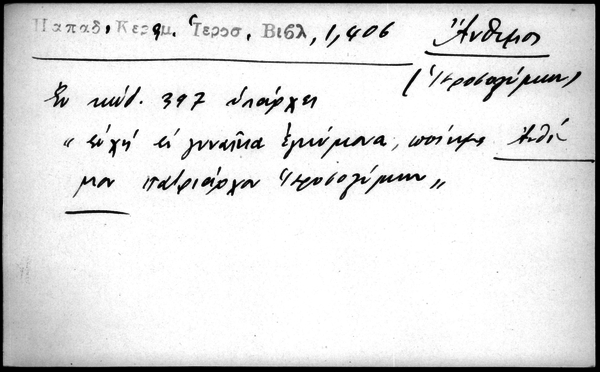 Παπαδ. Κεραμ. Ἱεροσ. Βιβλ, 1,406
Ἄνθιμος
(Ἱεροσολύμων)
Ἐν κώδ. 397 ὑπάρχει
„ εὐχή εἰ γυναῖκα ἐγκύμονα, ποίημα Ἀνθί-
μου πατριάρχου Ἱεροσολύμων „